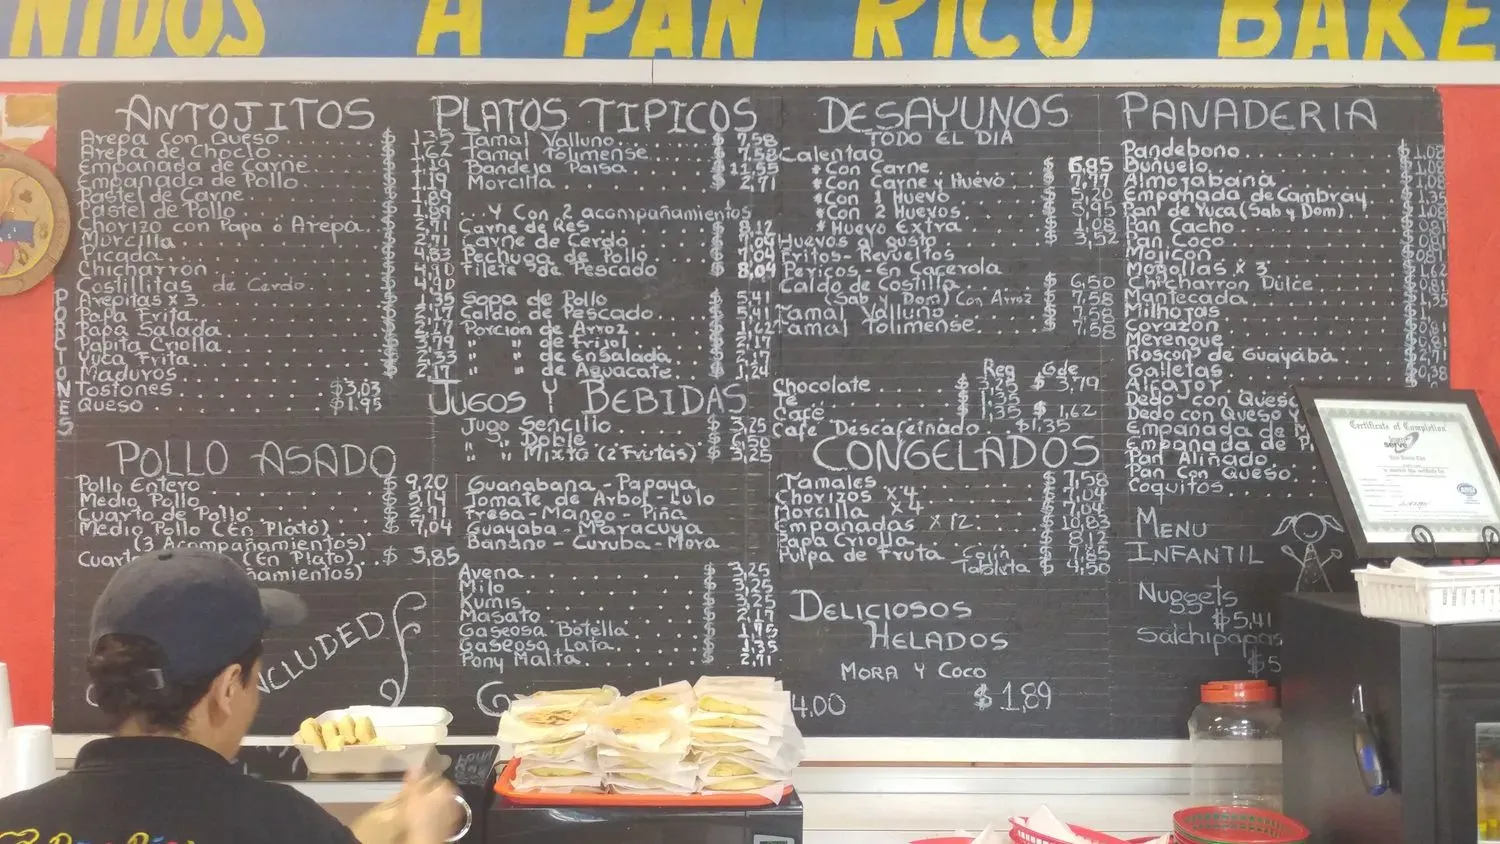 NIDOS A PAN RICO BAKE
ANTOJITOS
Arepa Con Queso $ 1,35
Arepa de Choclo $ 1,62
Empanada de Carne $ 1,19
Empanada de Pollo $ 1,19
Pastel de Carne $ 1,89
Pastel de Pollo $ 1,89
Chorizo con Papa ó Arepa $ 2,71
Morcilla $ 2,71
Picada $ 4,83
Chicharrón $ 4,90
Costillitas de Cerdo $ 4,90
PORCIONES
Arepitas x 3 $ 1,35
Papa Frita $ 2,17
Papa Salada $ 2,17
Papita Criolla $ 3,79
Yuca Frita $ 2,33
Maduros $ 2,17
Tostones $3,03
Queso $1.95
POLLO ASADO
Pollo Entero $ 9,20
Medio Pollo $ 5,14
Cuarto de Pollo $ 2,91
Medio Pollo (En Plato) $ 7,04
(3 Acompañamientos)
(En Plato) $ 5,85
ñamientos)
NCLUDED
PLATOS TIPICOS
Tamal Valluno $ 7,58
Tamal Tolimense $ 7,58
Bandeja Paisa $ 11,55
Morcilla $ 2,71
Y Con 2 acompañamientos
Carne de Res $ 8,12
Carne de Cerdo $ 7,04
Pechuga de Pollo $ 7,04
Filete de Pescado $ 8,04
Sopa de Pollo $ 5,41
Caldo de Pescado $ 5,41
Porción de Arroz $ 1,62
" " de Frijol $ 2,17
" " de Ensalada $ 2,17
" " de Aguacate $ 1,24
JUGOS Y BEBIDAS
Jugo Sencillo $ 3,25
" Doble $ 6,50
" " Mixto (2 Frutas) $ 3,25
Guanabana - Papaya
Tomate de Arbol - Lulo
Fresa - Mango - Piña
Guayaba - Maracuya
Banano - Curuba - Mora
Avena $ 3,25
Milo $ 3,25
Kumis $ 3,25
Masato $ 2,17
Gaseosa Botella $ 1,75
Gaseosa Lata $ 1,35
Pony Malta $ 2,71
DESAYUNOS
TODO EL DIA
Calentao
*Con Carne $ 6,95
*Con Carne y Huevo $
*Con 1 Huevo $ 5,20
*Con 2 Huevos $ 5,95
*Huevo Extra $ 1,08
Huevos al gusto $ 3,52
Fritos - Revueltos
Pericos - En Cacerola
Caldo de Costilla $ 6,50
(Sab y Dom) Con Arroz $ 7,58
Tamal Valluno $ 7,58
Tamal Tolimense $ 7,58
Reg Gde
Chocolate $ 3,25 $ 3,79
Te $ 1,35
Café $ 1,35 $ 1,62
Café Descafeinado $1,35
CONGELADOS
Tamales $ 7,58
Chorizos x 4 $ 7,04
Morcilla x 4 $ 7,04
Empanadas x 12 $ 10,83
Papa Criolla $ 8,12
Pulpa de Fruta Cojin $ 7,85
Tableta $ 4,50
DELICIOSOS
HELADOS
MORA Y COCO
$ 1,89
4.00
PANADERIA
Pandebono $ 1,08
Buñuelo 1,08
Almojabana 1,08
Empanada de Cambray 1,35
Pan de Yuca (Sab y Dom) 1,08
Pan Cacho
Pan Coco
Mojicon
Mogollas x 3 1,62
Chicharrón Dulce 0,81
Mantecada 1,35
Milhojas
Corazón
Merengue
Roscon de Guayaba 2,71
Galletas 0,38
Alfajor
Dedo con Queso
Dedo con Queso Y
Empanada de M
Empanada de P
Pan Aliñado
Pan Con Queso
Coquitos
MENU
INFANTIL
Nuggets
$5,41
Salchipapas
$5
Certificate of Completion
serve